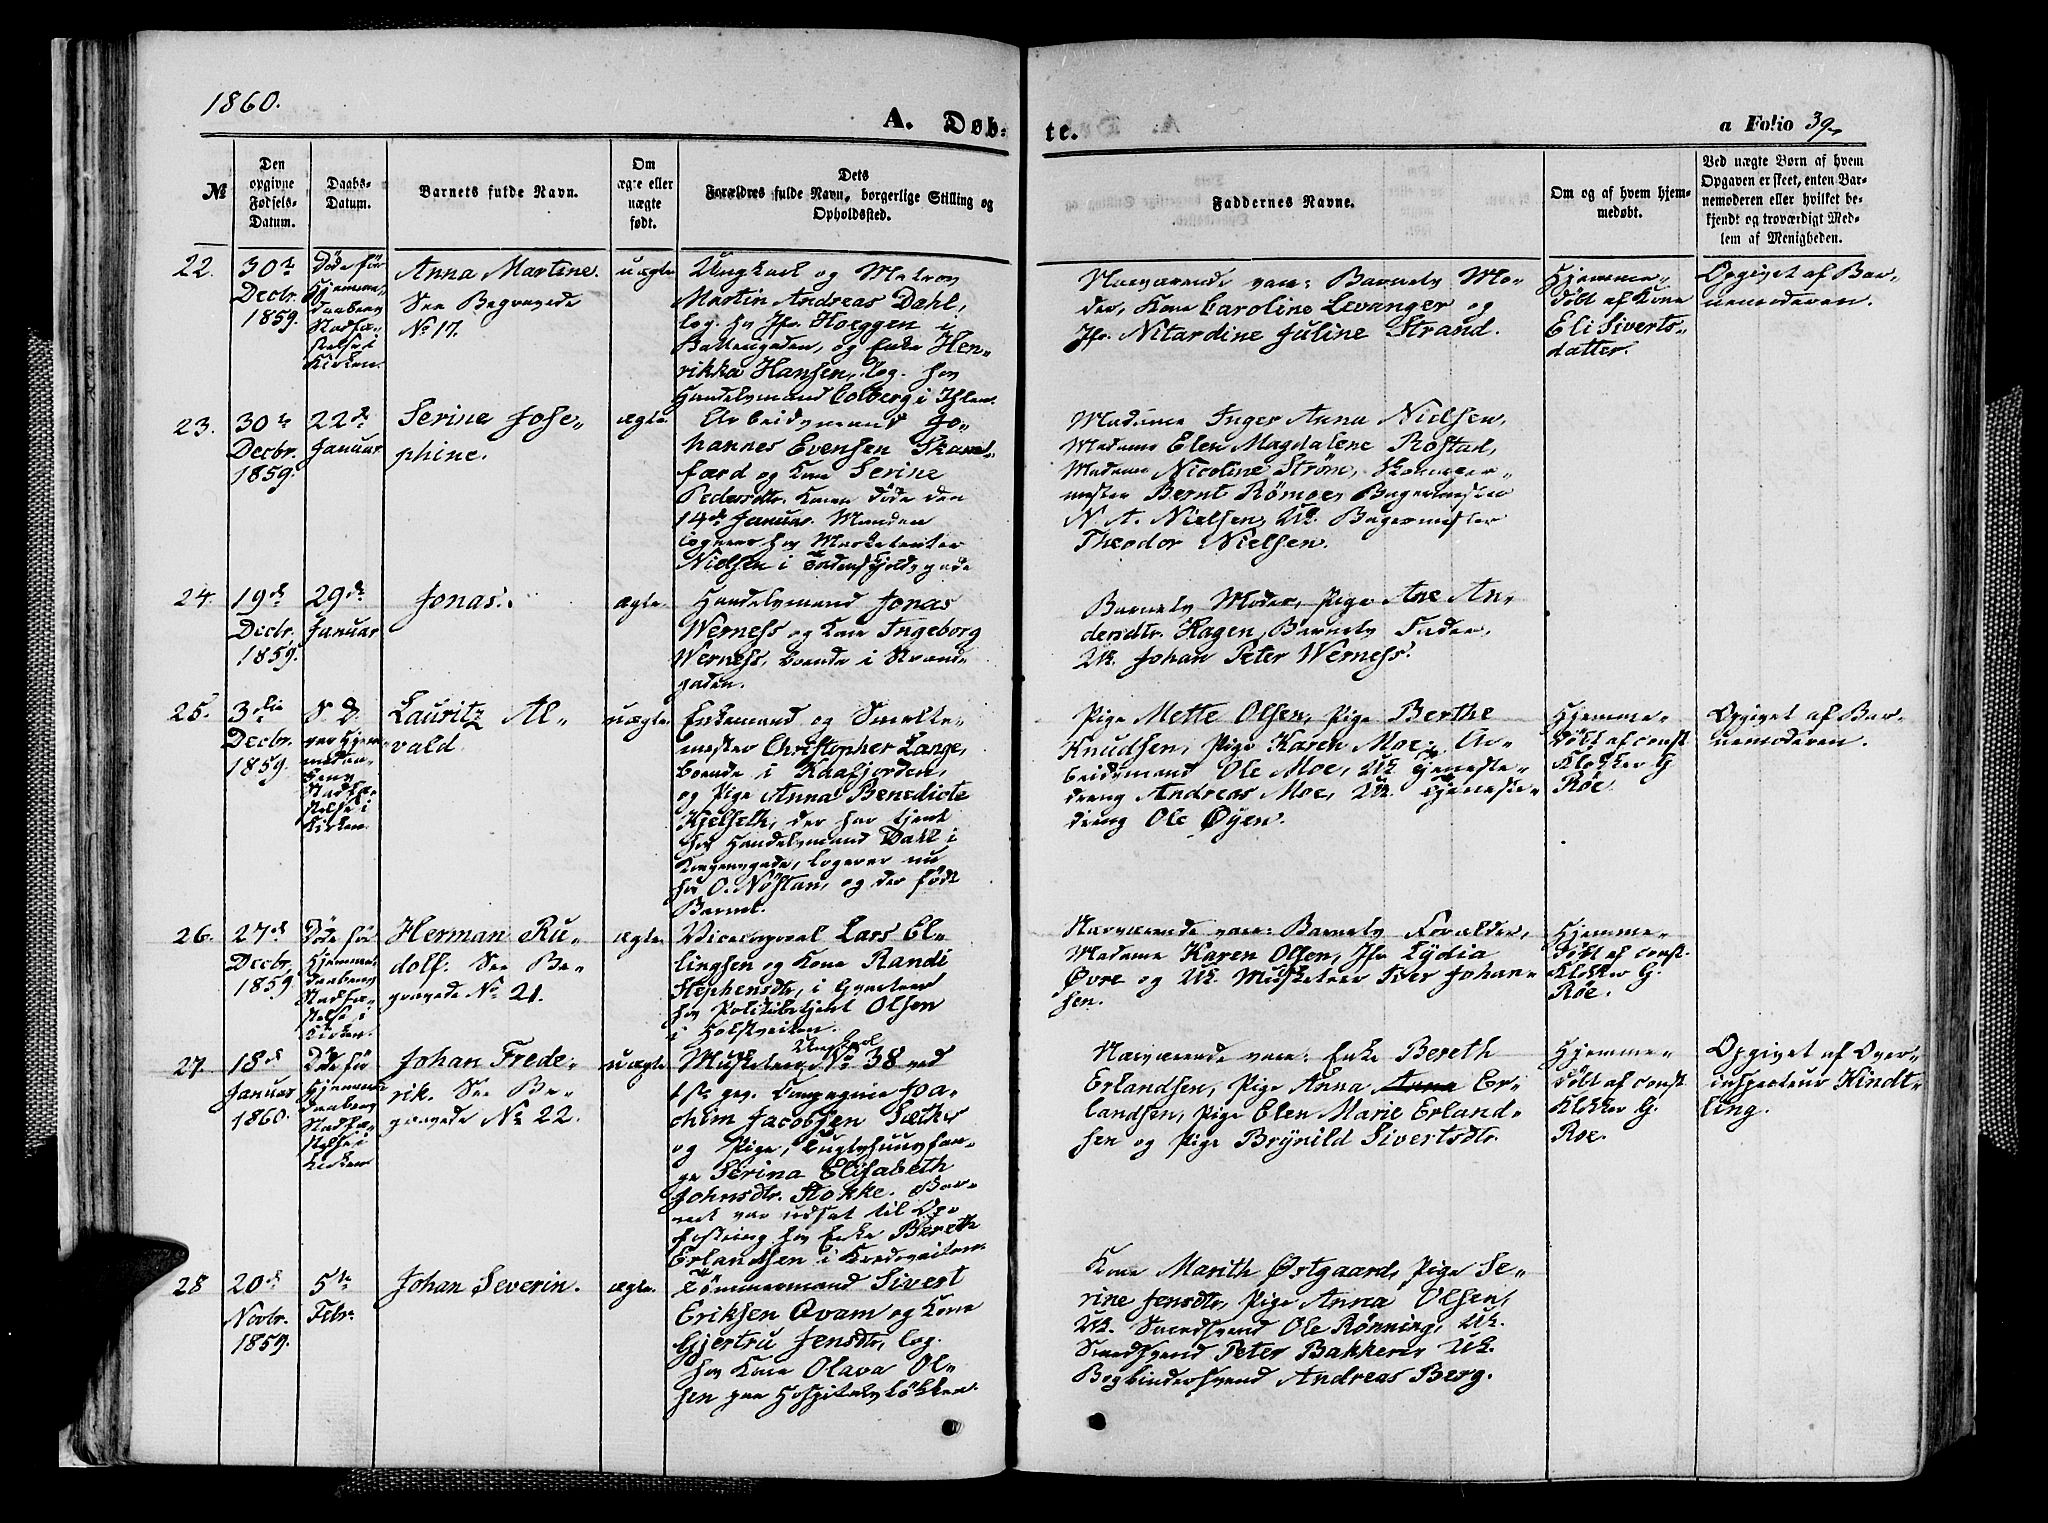 1860.
A. Døb-
te.
a Folio 39
№
Den opgivne Fødsels-Datum.
Daabs-Datum.
Barnets fulde Navn.
Om ægte eller uægte født.
Dets Forældres fulde Navn, borgerlige Stilling og Opholdssted.
Faddernes Navne.
Om og af hvem hjemmedøbt.
Ved uægte Børn af hvem Opgaven er skeet, enten Barnemoderen eller hvilket bekjendt og troværdigt Medlem af Menigheden.
22.
30te
Decbr.
1859.
Døde før
Hjemme-
daabens
Stadfæ-
stelse i
Kirken.
Anna Martine.
See Begravede
No 17.
uægte
Ungkarl og Matros
Martin Andreas Dahl,
log. hos Jfr. Hoeggen i
Bakkegaden, og Enke Hen-
rikka Hansen, log. hos
Handelsmand Colberg i Ihlen.
Nærværende vare: Barnets Mo-
der, Kone Caroline Levanger og
Jfr. Nitardine Juline Strand.
Hjemme-
døbt af Kone
Eli Siverts-
datter.
Opgivet af Bar-
nemoderen.
23.
30te
Decbr.
1859.
22de
Januar
Serine Jose-
phine.
ægte
Arbeidsmand Jo-
hannes Evensen
færd og Kone Serine
Pedersdtr. Konen døde den
14de Januar. Manden
logerer hos Marketenter
Nielsen i
Madame Inger Anna Nielsen,
Madame Elen Magdalene Rostad,
Madame Nicoline Strøm, Skomager-
mester Bernt Römoe, Bagermester
N. A. Nielsen, Uk. Bagermester
Theodor Nielsen.
24.
19de
Decbr.
1859.
29de
Januar
Jonas.
ægte.
Handelsmand Jonas
Werness og Kone Ingeborg
Werness, boende i Strand-
gaden.
Barnets Moder, Pige Ane An-
dersdtr. Hagen, Barnets Fader,
Uk. Johan Peter Werness.
25.
3die
Decbr.
1859.
S. D.
var Hjem-
medaa-
bens
Stadfæ-
stelse i
Kirken.
Lauritz Al-
vald.
uægte
Enkemand og Smelte-
mester Christopher Lange,
boende i Kaafjorden,
og Pige Anna Benedicte
Kjelseth, der har tjent
hos Handelsmand Dahl i
Kongensgade, logerer nu
hos O. Nøstan, og der født
Barnet.
Pige Mette Olsen, Pige Berthe
Knudsen, Pige Karen Moe, Ar-
beidsmand Ole Moe, Uk. Tjeneste-
dreng Andreas Moe, Uk. Tjeneste-
dreng Ole Øyen.
Hjemme-
døbt af const.
Klokker G.
Røe.
Opgivet af Bar-
nemoderen.
26.
27de
Decbr.
1859
Døde før
Hjemme-
daabens
Stadfæ-
stelse i
Kirken.
Herman Ru-
dolf. See Be-
gravede No 21.
ægte
Vicecorporal Lars El-
lingsen og Kone Randi
Stephensdtr., i Qvarteer
hos Politibetjent Olsen
i Holstveiten.
Nærværende vare: Barnets Forældre,
Madame Karen Olsen, Jfr. Lydia
Øvre og Uk. Musketeer Iver Johan-
sen.
Hjemme-
døbt af const.
Klokker G.
Røe.
27
18de
Januar
1860.
Døde før
Hjemme-
daabens
Stadfæ-
stelse i
Kirken
Johan Frede-
rik. See Be-
gravede No 22.
uægte
Ungkarl
Musketeer No 38 ved
1ste Compagnie Joa-
chim Jacobsen Sæther
og Pige, Tugthuusfan-
ge Serina Elisabeth
Johnsdtr. Stokke. Bar-
net var udsat til Op-
fostring hos Enke Bereth
Erlandsen i
Nærværende vare: Enke Bereth
Erlandsen, Pige Anna Anna Er-
landsen, Pige Elen Marie Erland-
sen og Pige Brynild Sivertsdtr.
Hjemme-
døbt af const
Klokker G.
Roe.
Opgivet af Over-
inspecteur Kindt-
ling.
28
20de
Novbr.
1859.
5te
Febr.
Johan Severin.
ægte.
Tømmermand Sivert
Eriksen Qvam og Kone
Gjertru Jensdtr., log.
hos Kone Olava Ol-
sen paa Hospitalsløkken.
Kone Marith Østgaard, Pige Se-
rine Jensdtr., Pige Anna Olsen,
Uk. Smedsvend Ole Rønning, Uk.
Smedsvend Peter Bakken, Uk.
Bogbindersvend Andreas Berg.